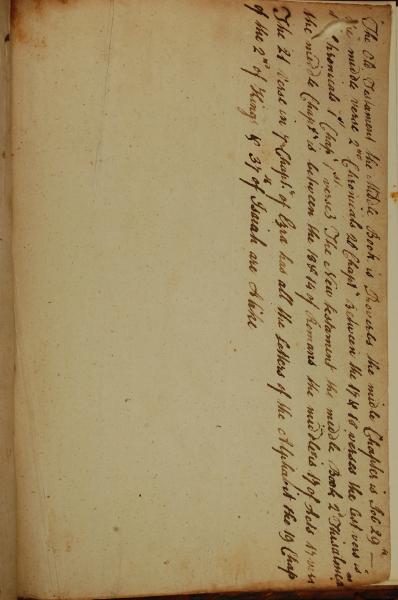 The Old Testament the Midle Book is Proverbs the midle Chapter is Job 29th
The middle verse 2nd Chronicals 20 Chapr between the 17 & 18 verses the last vers is
Chronicals 1st Chapr 1st verses The New testament the middle Book 2d Thesalonis
the middle Chapr is between the 13 & 14 of Romans the middle is 17 of Acts 17 vers
The 21 Verse in 7 Chaptr of Ezra has all the Letters of the Alphabit the 19 Chap
of the 2nd of Kings & 37th of Isaiah are Alike